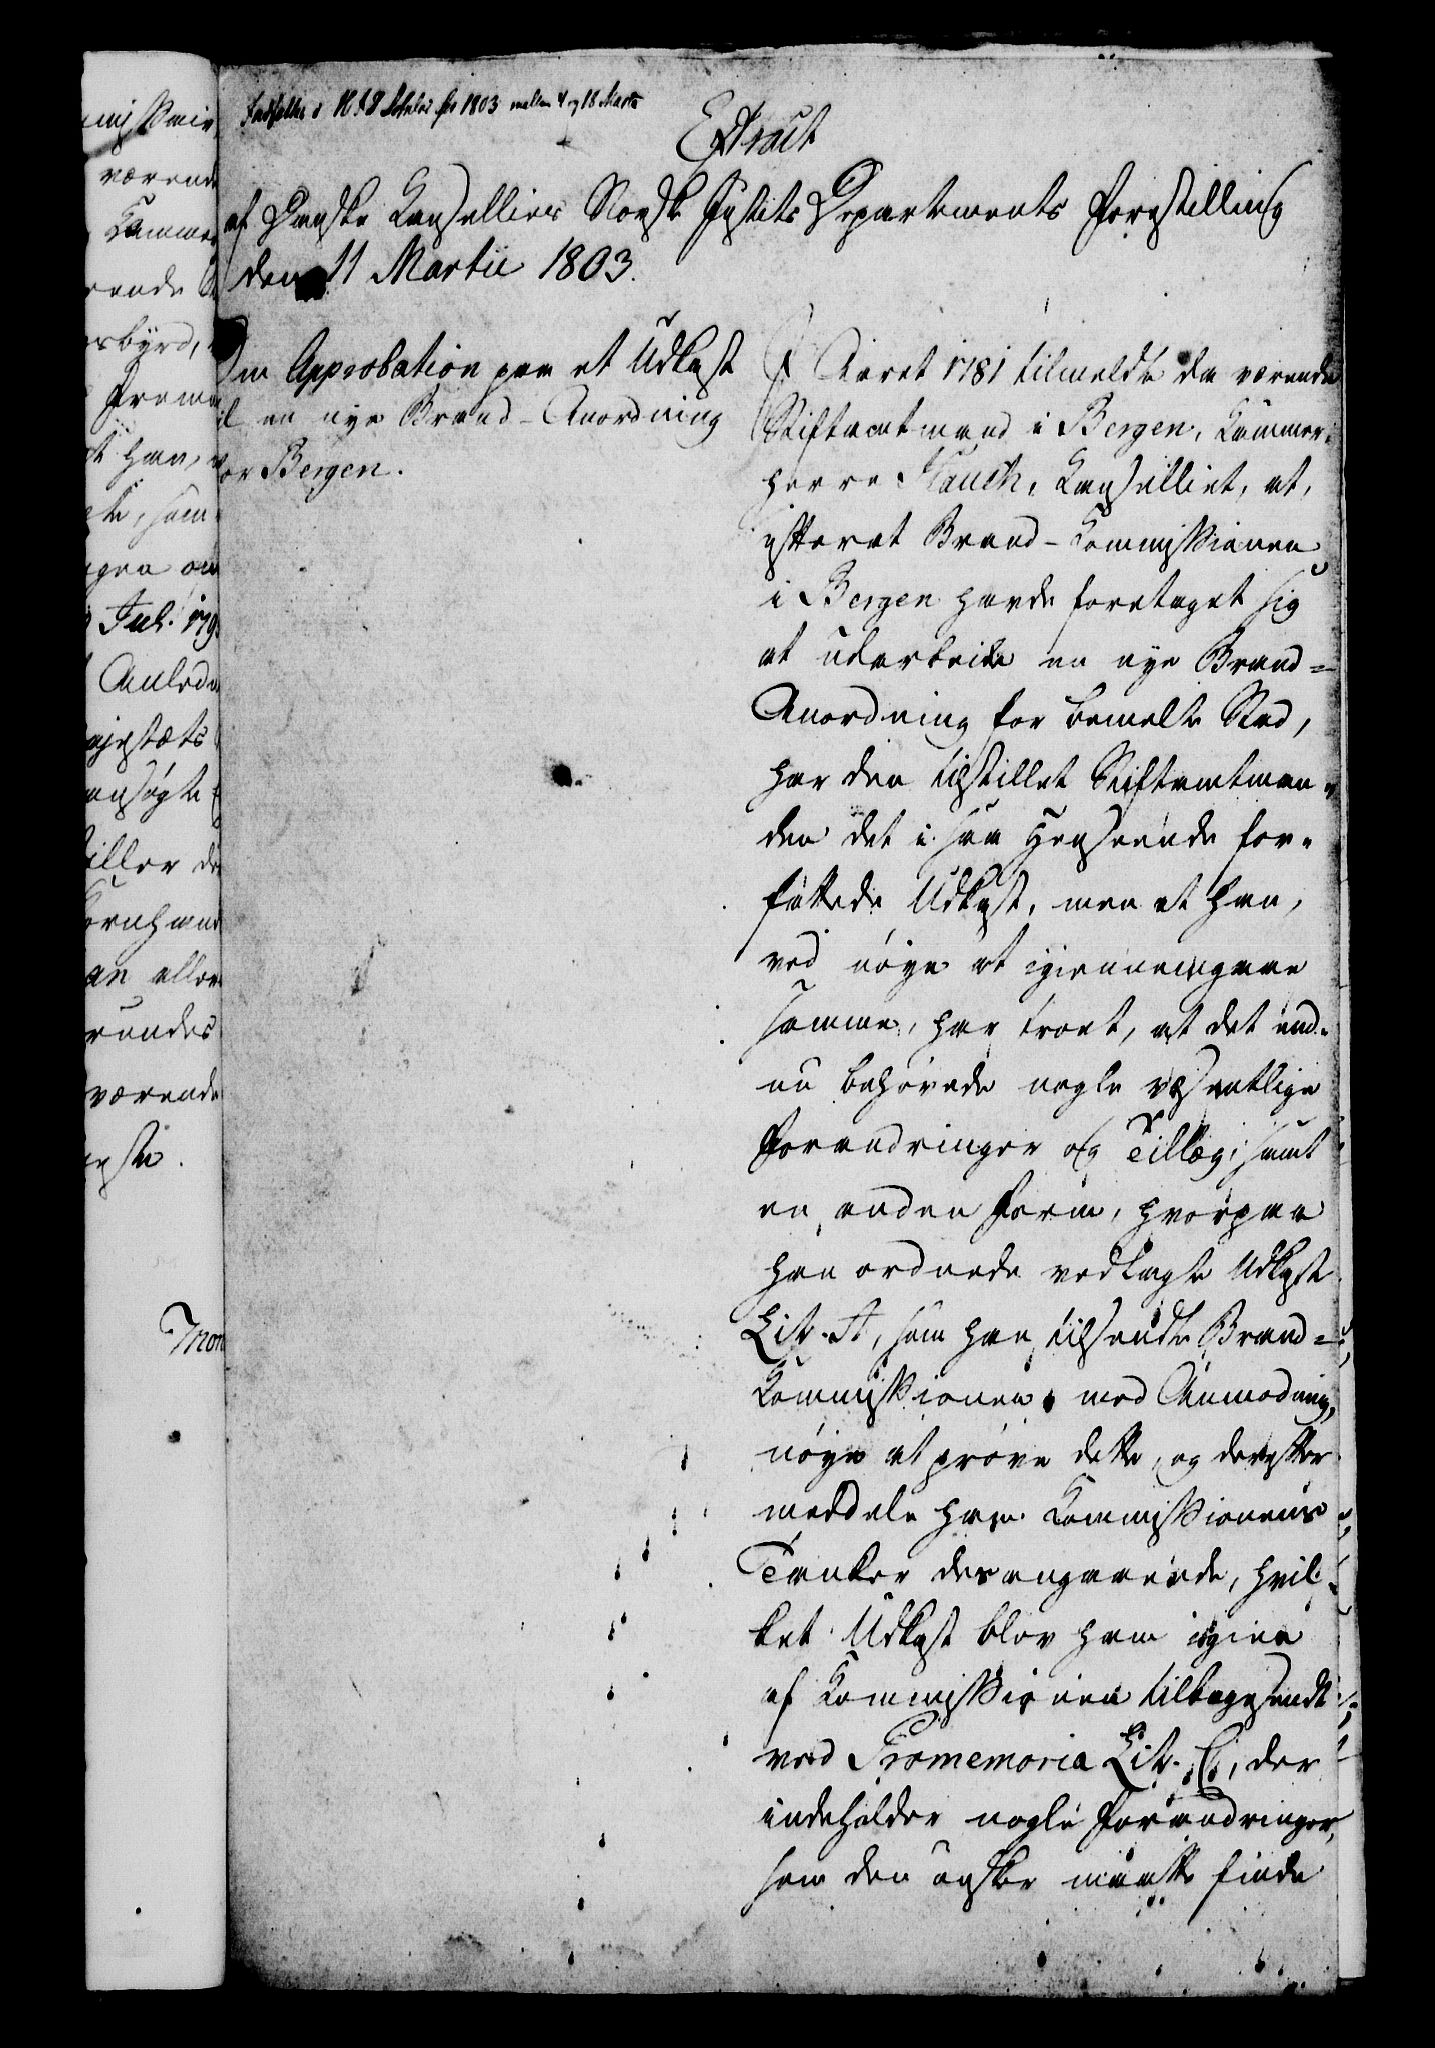 Extract
af Danske Kancelliers Norske Justits Departements Forestilling
den 11 Martii 1803.
Om Approbation paa et Udkast
til en nye Brand-Anordning
for Bergen.
I Aaret 1781 tilmeldte da værende
Stiftamtmand i Bergen, Kammer-
herre Hauch, Kancelliet, at,
efterat Brand-Kommissionen
i Bergen havde foretaget sig
at udarbeide en nye Brand-
Anordning for bemelte Stad,
har den tilstillet Stiftamtman-
den det i saa Henseende for-
fattede Udkast, men at han,
ved nøye at igiennemgaae
samme, har troet, at det end-
nu behøvede nogle væsentlige
Forandringer og Tillæg, samt
en anden Form, hvorpaa
han ordnede vedlagte Udkast
Lit. A, som han tilsendte Brand-
Kommissionen, med Anmodning,
nøye at prøve dette, og derefter
meddele ham Kommissionens
Tanker desangaaende, hvil-
ket Udkast blev ham igien
af Kommissionen tilbagesendt
ved Promemoria Lit. C, der
indeholder nogle Forandringer,
som den ønsker maatte finde
værende
Kammer
byrd,
Frem
han,
som
Jul. 179
Anled
ajestæts
ansøgte
iller de
værende
Mon